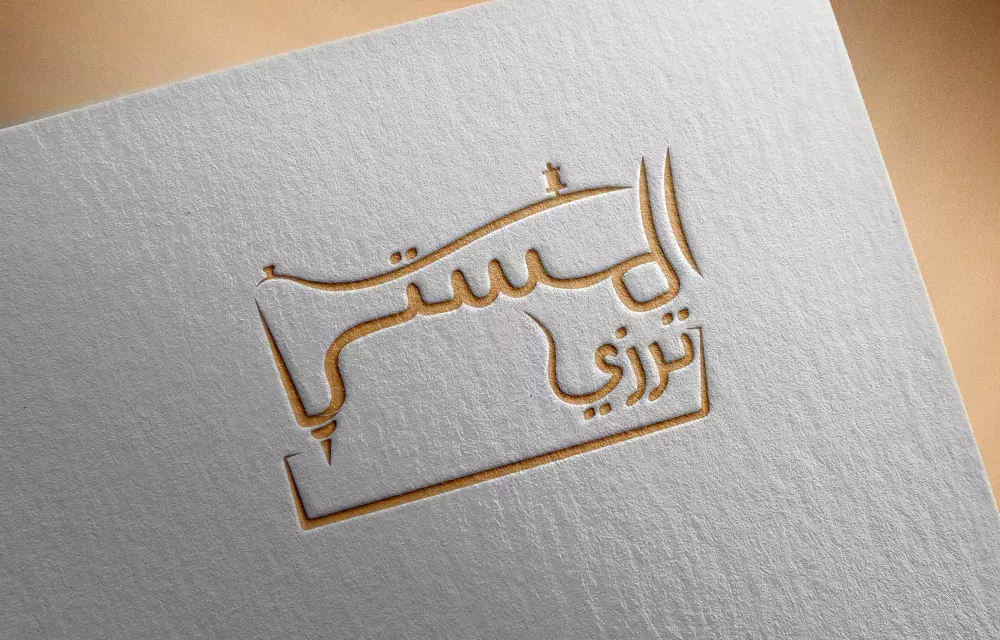 المستر
ترزي